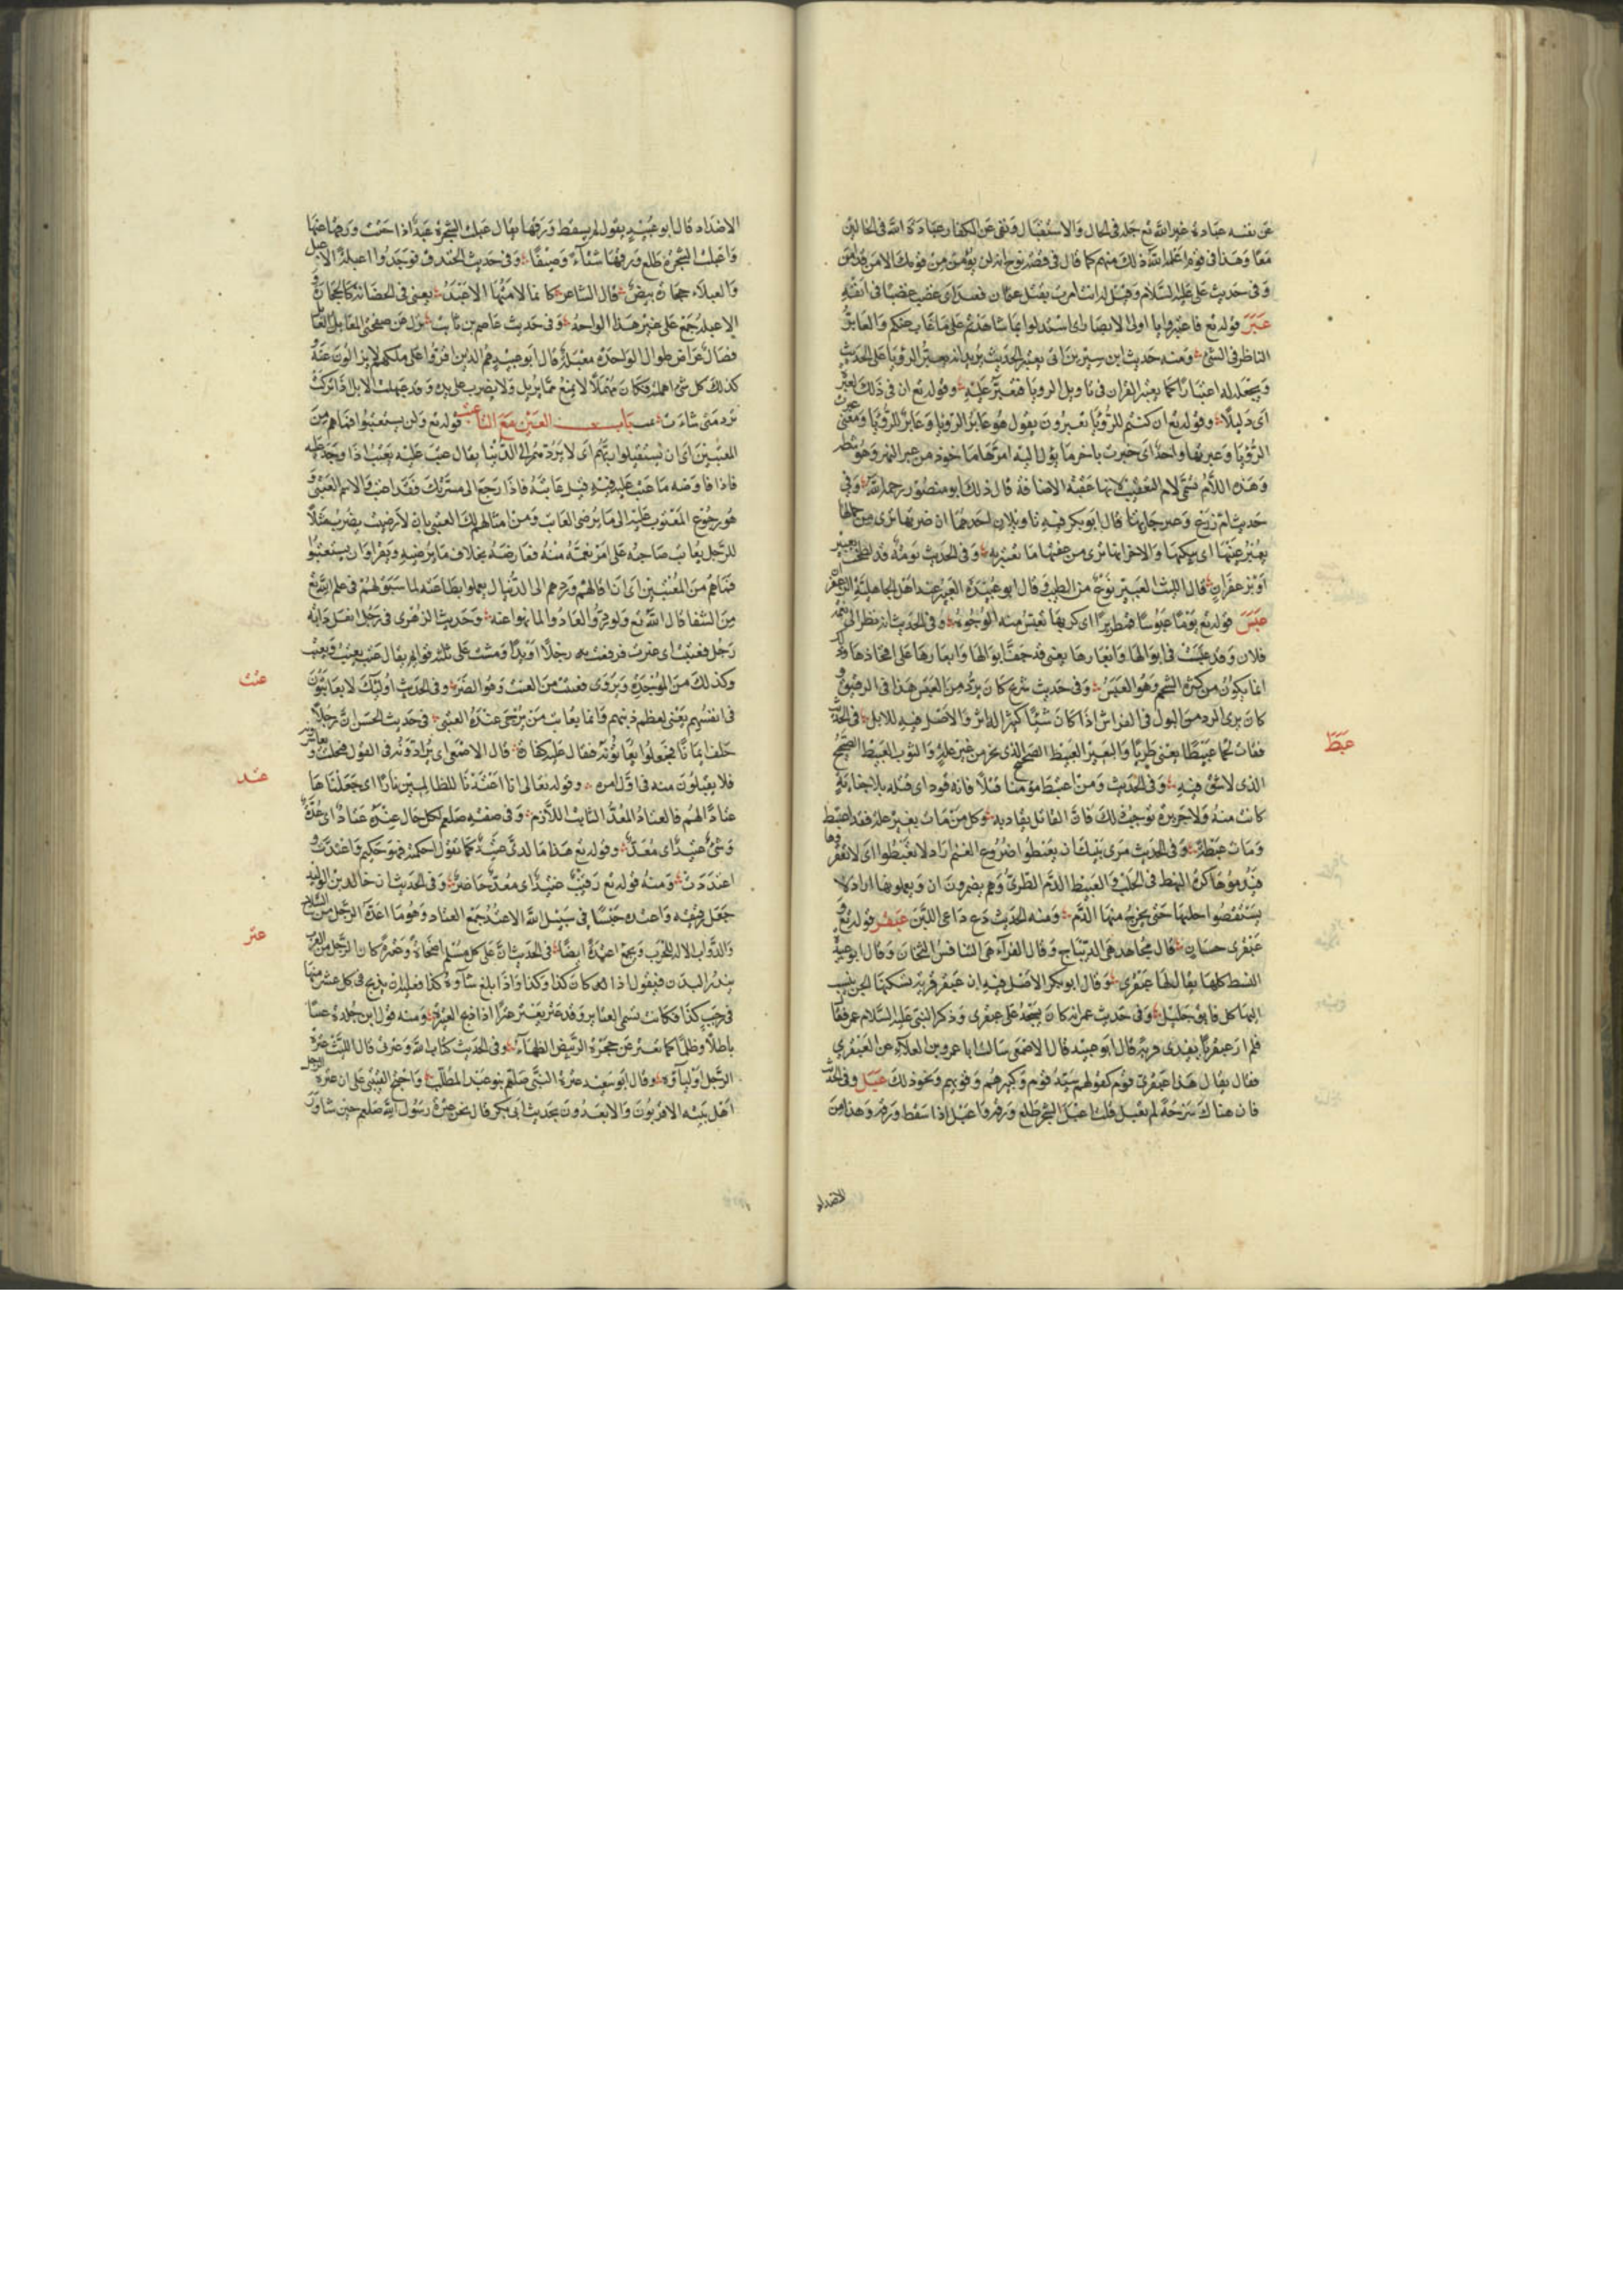 عن نفسه عبادة غير الله تع جلد في الحال والاستقبال ونفى عن الكفار عبادة الله في الحالين
معا وهذا في قوم اعلمه الله ذلك منهم كما قال في قصة نوح انه لن يؤمن من قومك الا من قد امن
وفي حديث علي عليه السلام وقيل له انت امرت بقتل عثمان فعبد اى غضب غضبا في انفة
عبر قوله تع فاعتبروا يا اولى الابصار اى استدلوا بما شاهدتم على ما غاب عنكم والعابر
الناظر في الشئ ومنه حديث ابن سيرين انى يعبر الحديث يريد انه يعبر الرؤيا على الحديث
ويجعله له اعتبارا كما يعبر القران في تاويل الرؤيا فعبر عليه وقوله تع ان في ذلك لعبرة
اى دليلا وقوله تع ان كنتم للرؤيا تعبرون يقول هو عابر الرؤيا وعابر للرؤيا ومعنى عبرت
الرؤيا وعبرتها واحد اى خبرت باخر ما يؤل اليه امرها ماخوذ من عبر النهر وهو شطه
وهذه اللام تسمى لام التعقيب لانها عقبت الاضافة قال ذلك ابو منصور رحمه الله وفي
حديث ام زرع وعبر جارتها قال ابو بكر فيه تاويلان احدهما ان ضرتها ترى من جمالها
يعبر عينها اى يبكيها والاخر انها ترى من عفتها ما تعتبر به وفي الحديث تومة قد لطخت بعبير
او بزعفران قال الليث العبير نوع من الطيب وقال ابو عبيدة العبير عند اهل الجاهلية الزعفران
عبس قوله تع يوما عبوسا قمطريرا اى كريها تعبس منه الوجوه وفي الحديث انه نظر الى نعم
فلان وقد عبست في ابوالها وابعارها يعنى قد جفت ابوالها وابعارها على افخاذها وذلك
انما يكون من كثرة الشحم وهو العبس وفي حديث شريح كان يرد من العبس هذا في الرقيق
كان يرى الرد من البول في الفراش اذا كان شيئا كثيرا والاصل فيه للابل وفي الحديث
عبط
فقات لحما عبيطا يعنى طريا والبعير العبيط الصحيح الذى نحر من غير علة والثوب العبيط الصحيح
الذى لا شق فيه وفي الحديث ومن اعتبط مؤمنا قتلا فانه قود اى قتله بلا جناية
كانت منه ولا جريرة توجب ذلك فان القاتل يقاد به وكل من مات بغير علة فقد اعتبط
ومات عبطة وفي الحديث مرى بنيك ان يعبطوا ضروع الغنم اراد لا تعبطوا اى لا تعقروها
فيدموها كره النهك في الحلب والعبيط الدم الطرى وهم يضمرون ان ويعملونها اراد لا
يستقصوا حلبها حتى يخرج منها الدم ومنه الحديث دع داعى اللبن عبقر قوله تع و
عبقرى حسان قال مجاهد هى الديباج وقال الفراء هى الطنافس الثخان وقال ابو عبيد
البسط كلها يقال لها عبقرى وقال ابو بكر الاصل فيه ان عبقر قرية تسكنها الجن ينسب
اليها كل فائق جليل وفي حديث عمر انه كان يسجد على عبقرى وذكر النبى عليه السلام عمر فقال
فلم ار عبقريا يفرى فريه قال ابو عبيد قال الاصمعى سالت ابا عمرو بن العلاء عن العبقرى
فقال يقال هذا عبقرى قوم كقولهم سيد قوم وكبيرهم وقويهم ونحو ذلك عبل وفي الحديث
فان هناك سرحة لم تعبل قلت اعبل الشجر طلع ورقه واعبل اذا سقط ورقه وهذا من
الاضداد
الاضداد قال ابو عبيد يقول لم يسقط ورقها يقال عبلت الشجرة عبلا اذا حتت ورقها عنها
واعبلت الشجرة طلع ورقها شتاء وصيفا وفي حديث الخندق فوجدوا اعبلة الاعبل
والعبلاء حجارة بيض قال الشاعر كانما لامتها الاعبل يعنى في الحصانة كالحجارة و
الاعبلة جمع على غير هذا الواحد وفي حديث عاصم بن ثابت تزل عن صفحتى المعابل المعابل
نصال عراض طوال الواحدة معبلة قال ابو عبيد هم الذين اقروا على ملكهم لا يزالون عنه و
كذلك كل شئ اهملته فكان مهملا لا يمنع مما يريد ولا يضرب على يديه وقد عبهلت الابل اذا تركت
ترد متى شاءت باب العين مع التاء عتب قوله تع وان يستعتبوا فما هم من
المعتبين اى ان يستقيلوا ربهم اى لا يردهم الى الدنيا يقال عتب عليه يعتب اذا وجد عليه
فاذا فاوضه ما عتب عليه فيه قيل عاتبه فاذا رجع الى مسرتك فقد اعتب والاسم العتبى و
هو رجوع المعتوب عليه الى ما يرضى العاتب ومن امثالهم لك العتبى بان لا رضيت يضرب مثلا
للرجل يعاتب صاحبه على امر نعمه منه فعارضه بخلاف ما يرضيه وتقرا وان يستعتبوا
فما هم من المعتبين اى ان اقالهم وردهم الى الدنيا لم يعملوا بطاعته لما سبق لهم في علم الله تع
من الشقا قال الله تع ولو ردوا لعادوا لما نهوا عنه وحديث الزهرى في رجل انعل دابة
رجل فعتبت اى عنزت فرفعت رجلا او يدا ومشت على ثلث قوائم يقال عتب يعتب ويعتب
وكذلك من الموجدة ويروى فعنت من العنت وهو الضرر وفي الحديث اولئك لا يعاتبون
عتت
في انفسهم يعنى لعظم ذنبهم وانما يعاتب من ترجى عنده العتبى في حديث الحسن ان رجلا
حلف ايمانا فجعلوا يعاتونه فقال عليه كفارة قال الاصمعى اى يرادونه في القول فيحلف و
عتد
فلا يقبلون منه في اول امره وقوله تعالى انا اعتدنا للظالمين نارا اى جعلناها
عتادا لهم فالعتاد المعد الثابت اللازم وفي صفته صلعم لكل حال عنده عتاد اى عدة
وشئ عتيد اى معد وقوله تع هذا ما لدى عتيد كما تقول احكمته فهو حكيم واعتدت و
اعددت ومنه قوله تع رقيب عتيد اى معد حاضر وفي الحديث ان خالد بن الوليد
جعل رقيقه واعتده حبسا في سبيل الله الاعتد جمع العتاد وهو ما اعده الرجل من السلاح
عتر
والدواب الالة للحرب ويجمع اعتدة ايضا في الحديث ان على كل مسلم اضحاة وعتيرة كان الرجل من العرب
ينذر النذر فيقول اذا كان كذا وكذا واذا بلغ شاؤه كذا فعليه ان يذبح في كل عشر منها
في رجب كذا فكانت تسمى العتاير وقد عتر يعتر عترا اذا ذبح العتيرة ومنه قول ابن حلزة عننا
باطلا وظلما كما تعتر عن حجرة الربيض الظباء وفي الحديث كتاب الله وعترتى قال الليث عترة
الرجل اولياؤه وقال ابو سعيد عترة النبى صلعم بنو عبد المطلب واحتج القتبى على ان عترة الرجل
اهل بيته الاقربون والابعدون بحديث ابى بكر قال نحن عترة رسول الله صلعم حين شاور